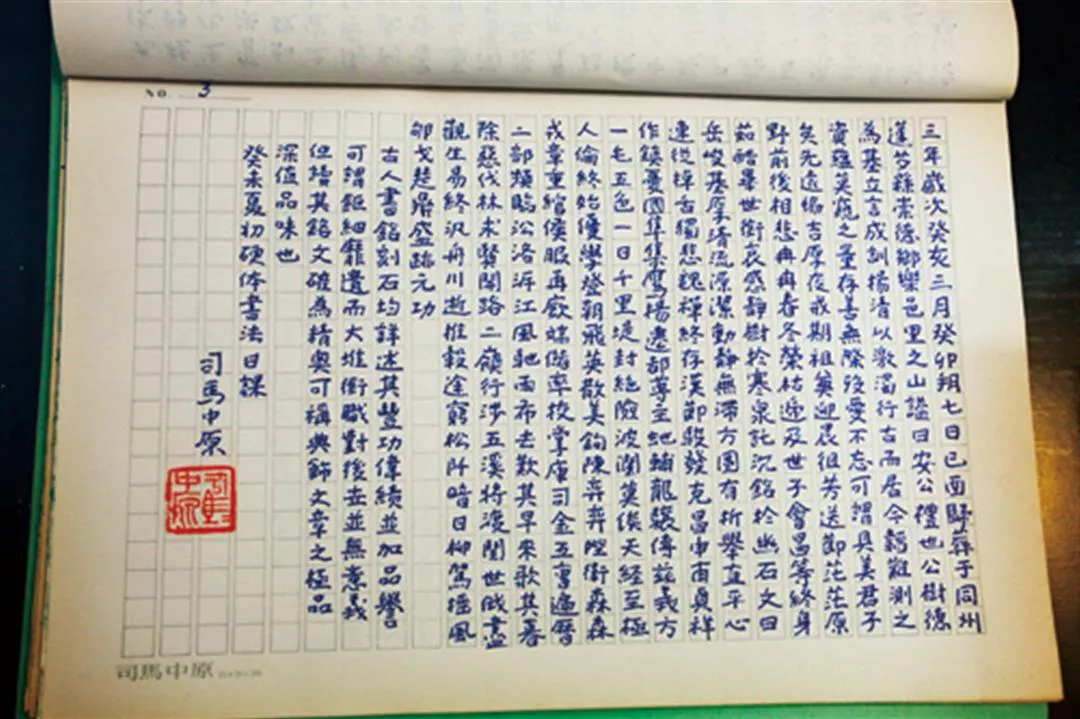 三年歲次癸亥三月癸卯朔七日己酉歸葬于同州
蓮芍縣崇德鄉樂邑里之山諡曰安公禮也公樹德
為基立言成訓揚清以激濁行古而居今韜難測之
資蘊莫窺之量存善無際歿愛不忘可謂具美君子
矣先遠緬吉厚夜戒期祖奠迎晨徂芳送節茫茫原
野前後相悲冉冉春冬榮枯遞及世子會昌等終身
茹酷畢世銜哀感靜樹於寒泉託沉銘於幽石文曰
岳峻基厚清流源潔動靜無滯方圓有折舉直平心
連從掉舌獨悲魏禪終存漢節駿發克昌申甫貞祥
作鎮憂國隼集鷹揚遷都尊主地輔龍驤傳茲義方
一毛五色一日千里堤封絕險波瀾莫俟天經至極
人倫終始優學登朝飛英散美鉤陳弈弈陛衛森森
戎章重綰侯服再歆端偕率校掌庫司金五曹遍曆
二部頻臨淞洛江風馳雨布去歎其早來歌其暮
除惡伐林求賢開路二嶺行涉五溪將渡閱世
觀生易終汎舟川逝推轂途窮松阡暗日柳駕搖風
戈楚鼎盛跡元功
古人書銘刻石均詳述其豐功偉績並加品譽
可謂鉅細靡遺而大堆銜職對後世並無意義
但讀其銘文確為精奧可稱典飾文章之極品
深值品味也
癸未夏初硬体書法日課
司馬中原
司馬中原
NO. 3
司馬中原